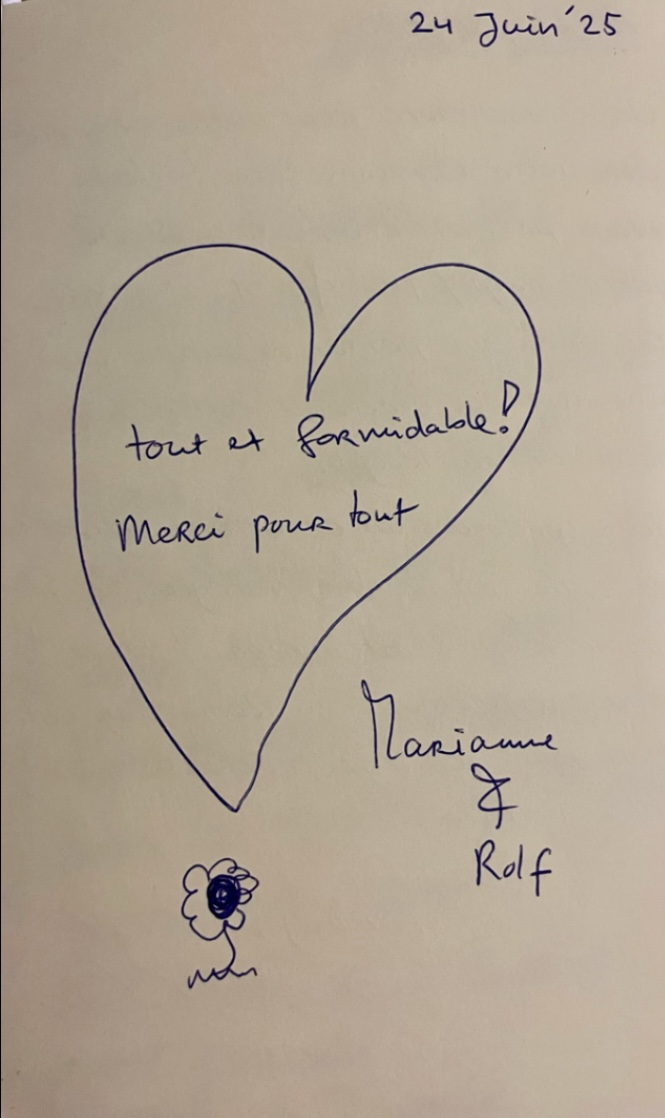 24 Juin '25
tout et formidable!
Merci pour tout
Marianne
&
Rolf